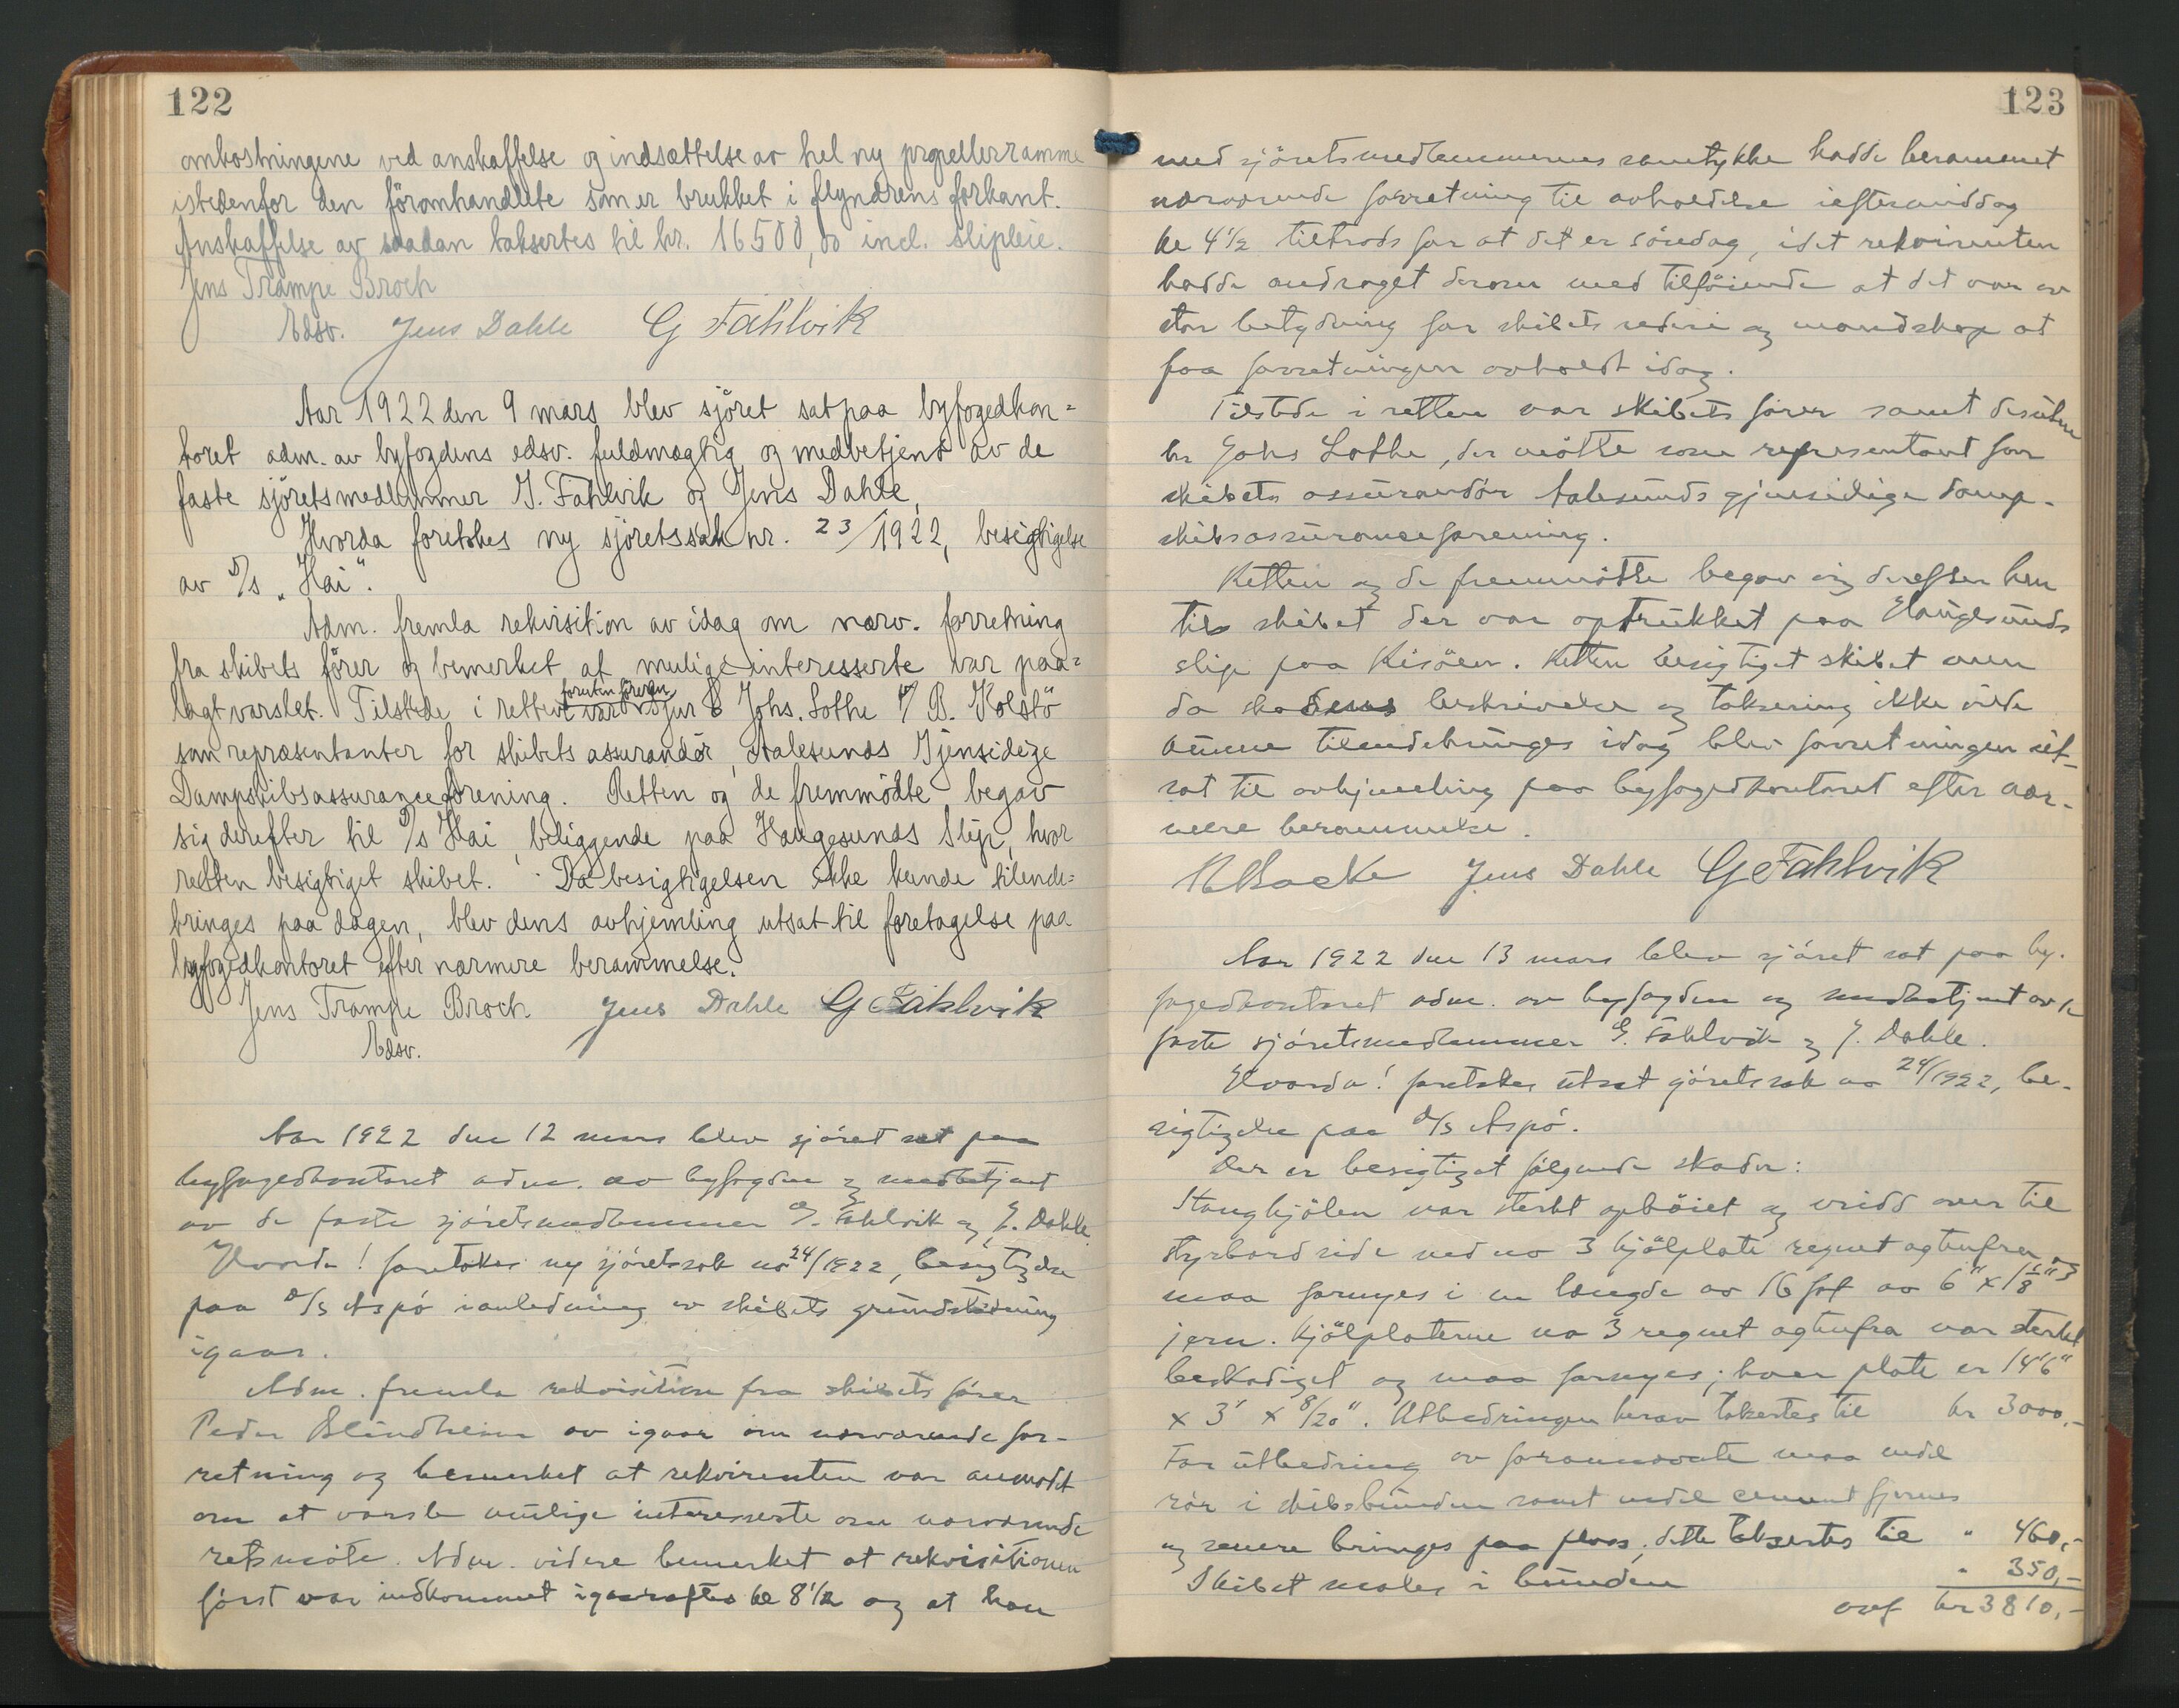 122
omkostningene ved anskaffelse og indsættelse av hel ny propellerramme
istedenfor den föromhandlete som er brukket i flyndrens forkant.
Anskaffelse av saadan taksertes til kr. 16500,00 incl. slipleie.
Jens Trampe Broch
Edsv. Jens Dahle G Fahlvik
Aar 1922 den 9 mars blev sjöret sat paa byfogedkon=
toret adm. av byfogdens edsv. fuldmægtig og medbetjent av de
faste sjöretsmedlemmer G. Fahlvik og Jens Dahle,
Hvorda foretokes ny sjöretssak nr. 23/1922, besigtigelse
av D/s „Hai".
Adm. fremla rekvisition av idag om nærv. forretning
fra skibets förer og bemerket at mulige interesserte var paa=
lagt varslet. Tilstede i retten var foruten föreren Johs. Lothe B. Kolstö
som repræsentanter for skibets assurandör, Aalesunds Gjensidige
Dampskibsassuranceforening. Retten og de fremmödte begav
sig derefter til D/s Hai, beliggende paa Haugesunds Slip, hvor
retten besigtiget skibet. Da besigtigelsen ikke kunde tilende=
bringes paa dagen, blev dens avhjemling utsat til foretagelse paa
byfogedkontoret efter nærmere berammelse.
Jens Trampe Broch. Jens Dahle G Fahlvik
Edsv.
Aar 1922 den 12 mars blev sjöret sat paa
byfogedkontoret adm. av byfogden og medbetjent
av de faste sjöretsmedlemmer G. Fahlvik og J. Dahle.
Hvorda! foretokes ny sjöretssak no 24/1922, besigtigelse
paa D/S Aspö i anledning av skibets grundstötning
igaar.
Adm. fremla rekvisition fra skibets förer
Peder Blindheim av igaar om nærværende for-
retning og bemerket at rekvirenten var anmodet
om at varsle mulige interesserte om nærværende
retsmöte. Adm. videre bemerket at rekvisitionen
först var indkommet igaaraftes kl 8 1/2 og at han
123
med sjöretsmedlemmernes samtykke hadde berammet
nærværende forretning til avholdelse ieftermiddag
kl 4 1/2 tiltrods for at det er söndag, idet rekvirenten
hadde andraget derom med tilföiende at det var av
stor betydning for skibets rederi og mandskap at
faa forretningen avholdt idag.
Tilstede i retten var skibets förer samt desuten
hr Johs Lothe, der mötte som representant for
skibets assurandör Aalesunds gjensidige damp-
skibsassuranceforening.
Retten og de fremmötte begav sig derefter hen
til skibet der var optrukket paa Haugesunds
slip paa Risöen. Retten besigtiget skibet men
da skadens beskrivelse og taksering ikke vilde
kunne tilendebringes idag blev forretningen ut-
sat til avhjemling paa byfogedkontoret efter nær-
mere berammelse.
Jens Dahle G Fahlvik
Aar 1922 den 13 mars blev sjöret sat paa by-
fogedkontoret adm. av byfogden og medbetjent av de
faste sjöretsmedlemmer G. Fahlvik og J. Dahle.
Hvorda! foretokes utsat sjöretssak no 24/1922, be-
sigtigelse paa D/S Aspö.
Der er besigtiget fölgende skader:
Stangkjölen var sterkt opböiet og vridd over til
styrbord side ved no 3 kjölplate regnet agtenfra og
maa fornyes i en længde av 16 fot av 6" x 1 1/8"
jern. Kjölplaterne no 3 regnet agtenfra var sterkt
beskadiget og maa fornyes; hver plate er 14'6"
x 3' x 8/20". Utbedringen herav takertes til kr 3000,-
For utbedring av forannævnte maa endel
rör i skibsbunden samt endel cement fjernes
og senere bringes paa plass; dette taksertes til " 460,-
Skibet males i bunden " 350,-
kr 3810,-